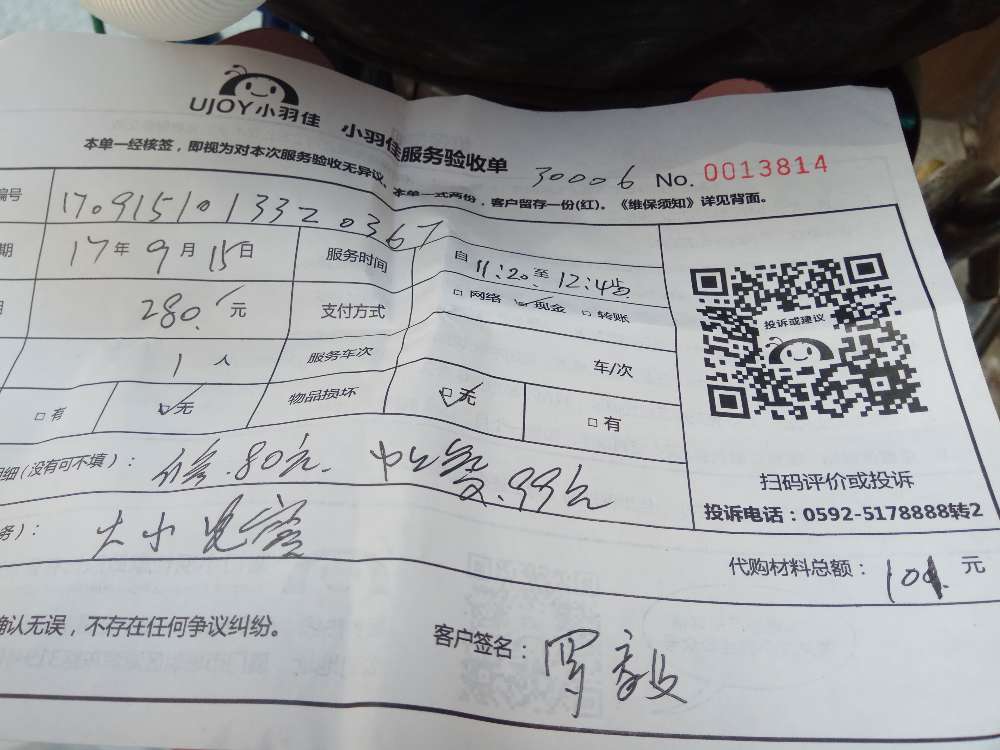 UJOY小羽佳 小羽佳服务验收单
本单一经核签，即视为对本次服务验收无异议。本单一式两份，客户留存一份(红)。《维保须知》详见背面。
30006 No. 0013814
编号 1709151013320367
期 17年9月15日 服务时间 自11:20至12:45
280. 元 支付方式 □网络 ☑现金 □转账
1人 服务车次 车/次
□有 ☑无 物品损坏 ☑无 □有
投诉或建议
扫码评价或投诉
投诉电话：0592-5178888转2
明细(没有可不填)： 80元. 99元
务)：大小
代购材料总额： 元
确认无误，不存在任何争议纠纷。
客户签名：罗毅